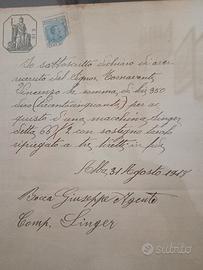 Io sottoscritto dichiaro di aver
ricevuto dal Signor Cornavento
Vincenzo la somma di lire 350
dico (trecentocinquanta) per ac
quisto d'una macchina Singer
detta 66/2 con sostegno tavolo
ripiegato a tre tiretti in più
31 Agosto 1917
Bocca Giuseppe Agente
Comp. Singer
subito